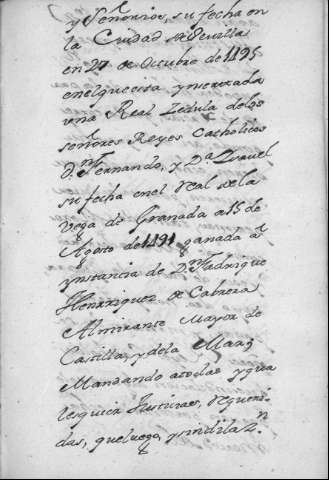 y Señorios, su fecha en
la Ciudad de Sevilla
en 27 de Octubre de 1495
en el que esta ynsertada
una Real Zedula de los
señores Reyes Catholicos
Dn. Fernando, y Da. Ysavel
su fecha en el Real de la
vega de Granada a 15 de
Agosto de 1491 ganada a
ynstancia de Dn. Fadrique
Henrriquez de Cabrera
Almirante Mayor de
Castilla, y de la Mar,
Mandando a todas y qua
lesquier Justicias, requeri
das, que luego, y sin dilazn.